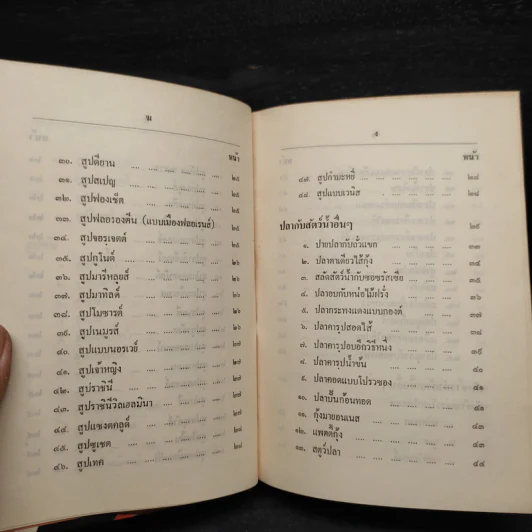 ฆ
หน้า
๓๐. สูปดียาน .... .... .... .... ๒๕
๓๑. สูปสเปญ .... .... .... .... ๒๕
๓๒. สูปฟองเช็ต .... .... .... .... ๒๕
๓๓. สูปฟลอรองตีน (แบบเมืองฟลอเรนส์) ๒๕
๓๔. สูปชอรเชตต์ .... .... .... ....
๓๕. สูปกูโนต์ .... .... .... .... ๒๖
๓๖. สูปมารีหลุยส์ .... .... .... ๒๖
๓๗. สูปมาทิลด์ .... .... .... ๒๖
๓๘. สูปโมซาร์ต์ .... .... .... ๒๖
๓๙. สูปเนมูรส์ .... .... .... ๒๖
๔๐. สูปแบบนอรเวย์ .... .... ๒๗
๔๑. สูปเจ้าหญิง .... .... .... ๒๗
๔๒. สูปราชินี .... .... .... ๒๗
๔๓. สูปราชินีวิลเฮลมินา .... .... ๒๗
๔๔. สูปแซงตคลูด์ .... .... .... ๒๗
๔๕. สูปซูเชต .... .... .... ๒๘
๔๖. สูปเทค .... .... .... ๒๘
ง
หน้า
๔๗. สูปกำมะหยี่ .... .... .... ๒๘
๔๘. สูปแบบเวนิส .... .... .... ๒๘
ปลากับสัตว์น้ำอื่นๆ
๑. ปายปลากับถั่วแขก .... .... ๓๓
๒. ปลาตาเดียวไส้กุ้ง .... ....
๓. สลัดสัตว์น้ำกับซอซรัสเซีย ....
๔. ปลายบกับหน่อไม้ฝรั่ง .... ๓๖
๕. ปลากระทงแดงแบบกองต์ ....
๖. ปลาคารูปสอดไส้ .... ....
๗. ปลาคารูปอบอีกวิธีหนึ่ง .... ๓๙
๘. ปลาคารูปน้ำข้น .... ....
๙. ปลาคอดแบบโปรวอง .... .... ๔๑
๑๐. ปลาปั้นก้อนทอด .... .... ๔๑
๑๑. กุ้งมายอนเนส .... ....
๑๒. แพตตีกุ้ง .... .... .... ๔๓
๑๓. สตูว์ปลา .... .... .... ๔๔